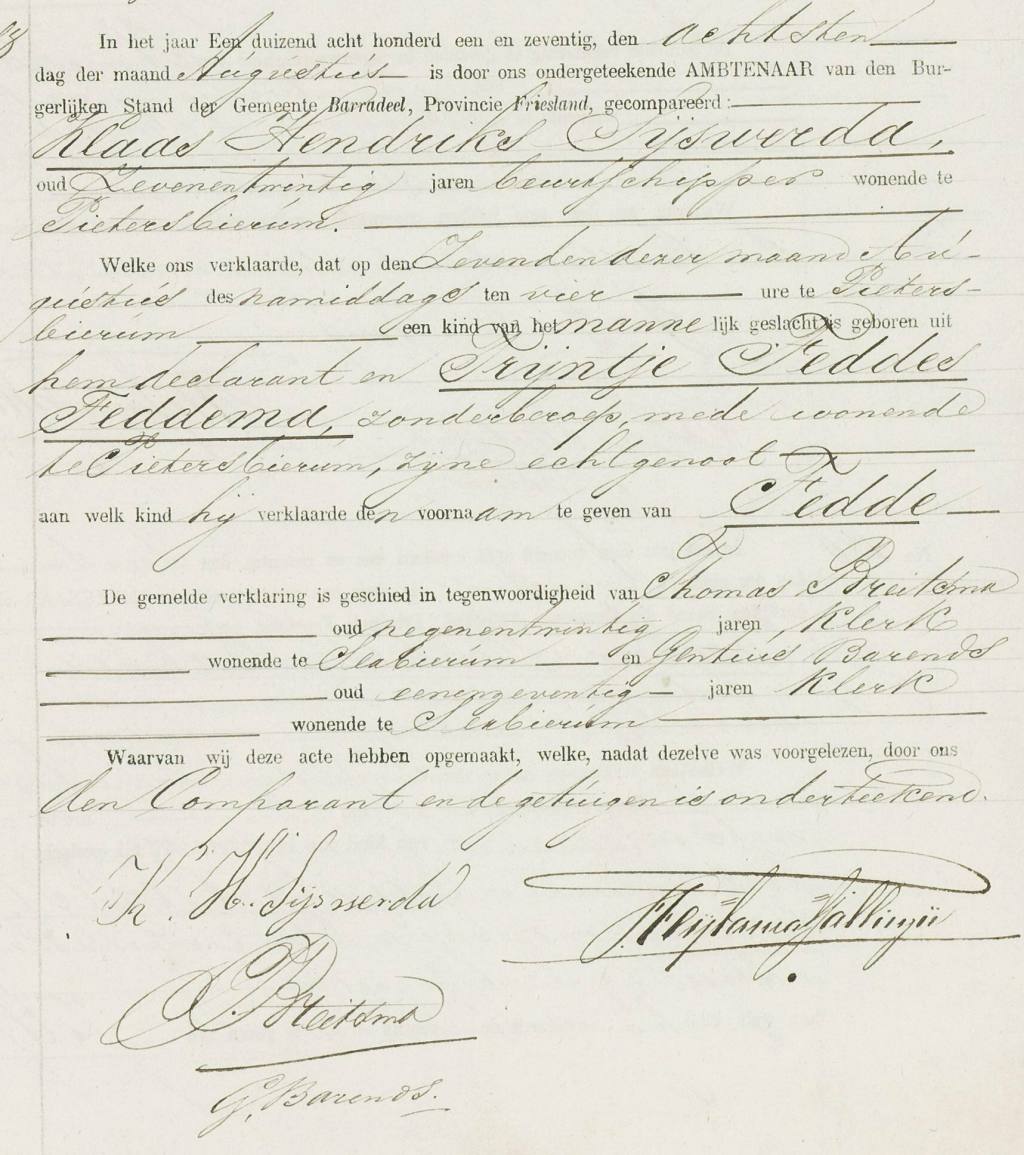 In het jaar Een duizend acht honderd een en zeventig, den achtsten
dag der maand Augustus is door ons ondergeteekende AMBTENAAR van den Bur-
gerlijken Stand der Gemeente Barradeel, Provincie Friesland, gecompareerd:
Klaas Hendriks Sijswerda,
oud Zevenentwintig jaren beurtschipper wonende te
Pietersbierum.
Welke ons verklaarde, dat op den Zevenden dezer maand Au-
gustus des namiddags ten vier ure te Pieters-
bierum een kind van het mannelijk geslacht is geboren uit
hem declarant en Trijntje Feddes
Feddema, zonder beroep, mede wonende
te Pietersbierum, zijne echtgenoot
aan welk kind hij verklaarde den voornaam te geven van Fedde
De gemelde verklaring is geschied in tegenwoordigheid van Thomas Breitsma
oud negenentwintig jaren, Klerk
wonende te Sexbierum en Gentius Barends
oud eenenzeventig jaren Klerk
wonende te Sexbierum
Waarvan wij deze acte hebben opgemaakt, welke, nadat dezelve was voorgelezen, door ons
den Comparant en de getuigen is onderteekend.
K. H. Sijswerda
Breitsma
G. Barends.